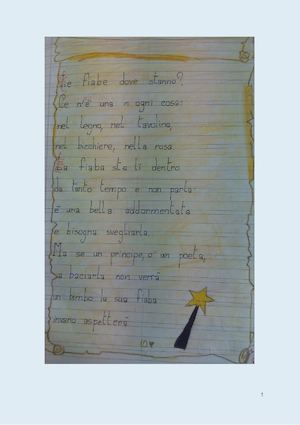 Le fiabe dove stanno?
Ce n'è una in ogni cosa:
nel legno, nel tavolino,
nel bicchiere, nella rosa.
La fiaba sta lì dentro
da tanto tempo e non parla:
è una bella addormentata
e bisogna svegliarla.
Ma se un principe, o un poeta,
a baciarla non verrà
un bimbo la sua fiaba
invano aspetterà
1